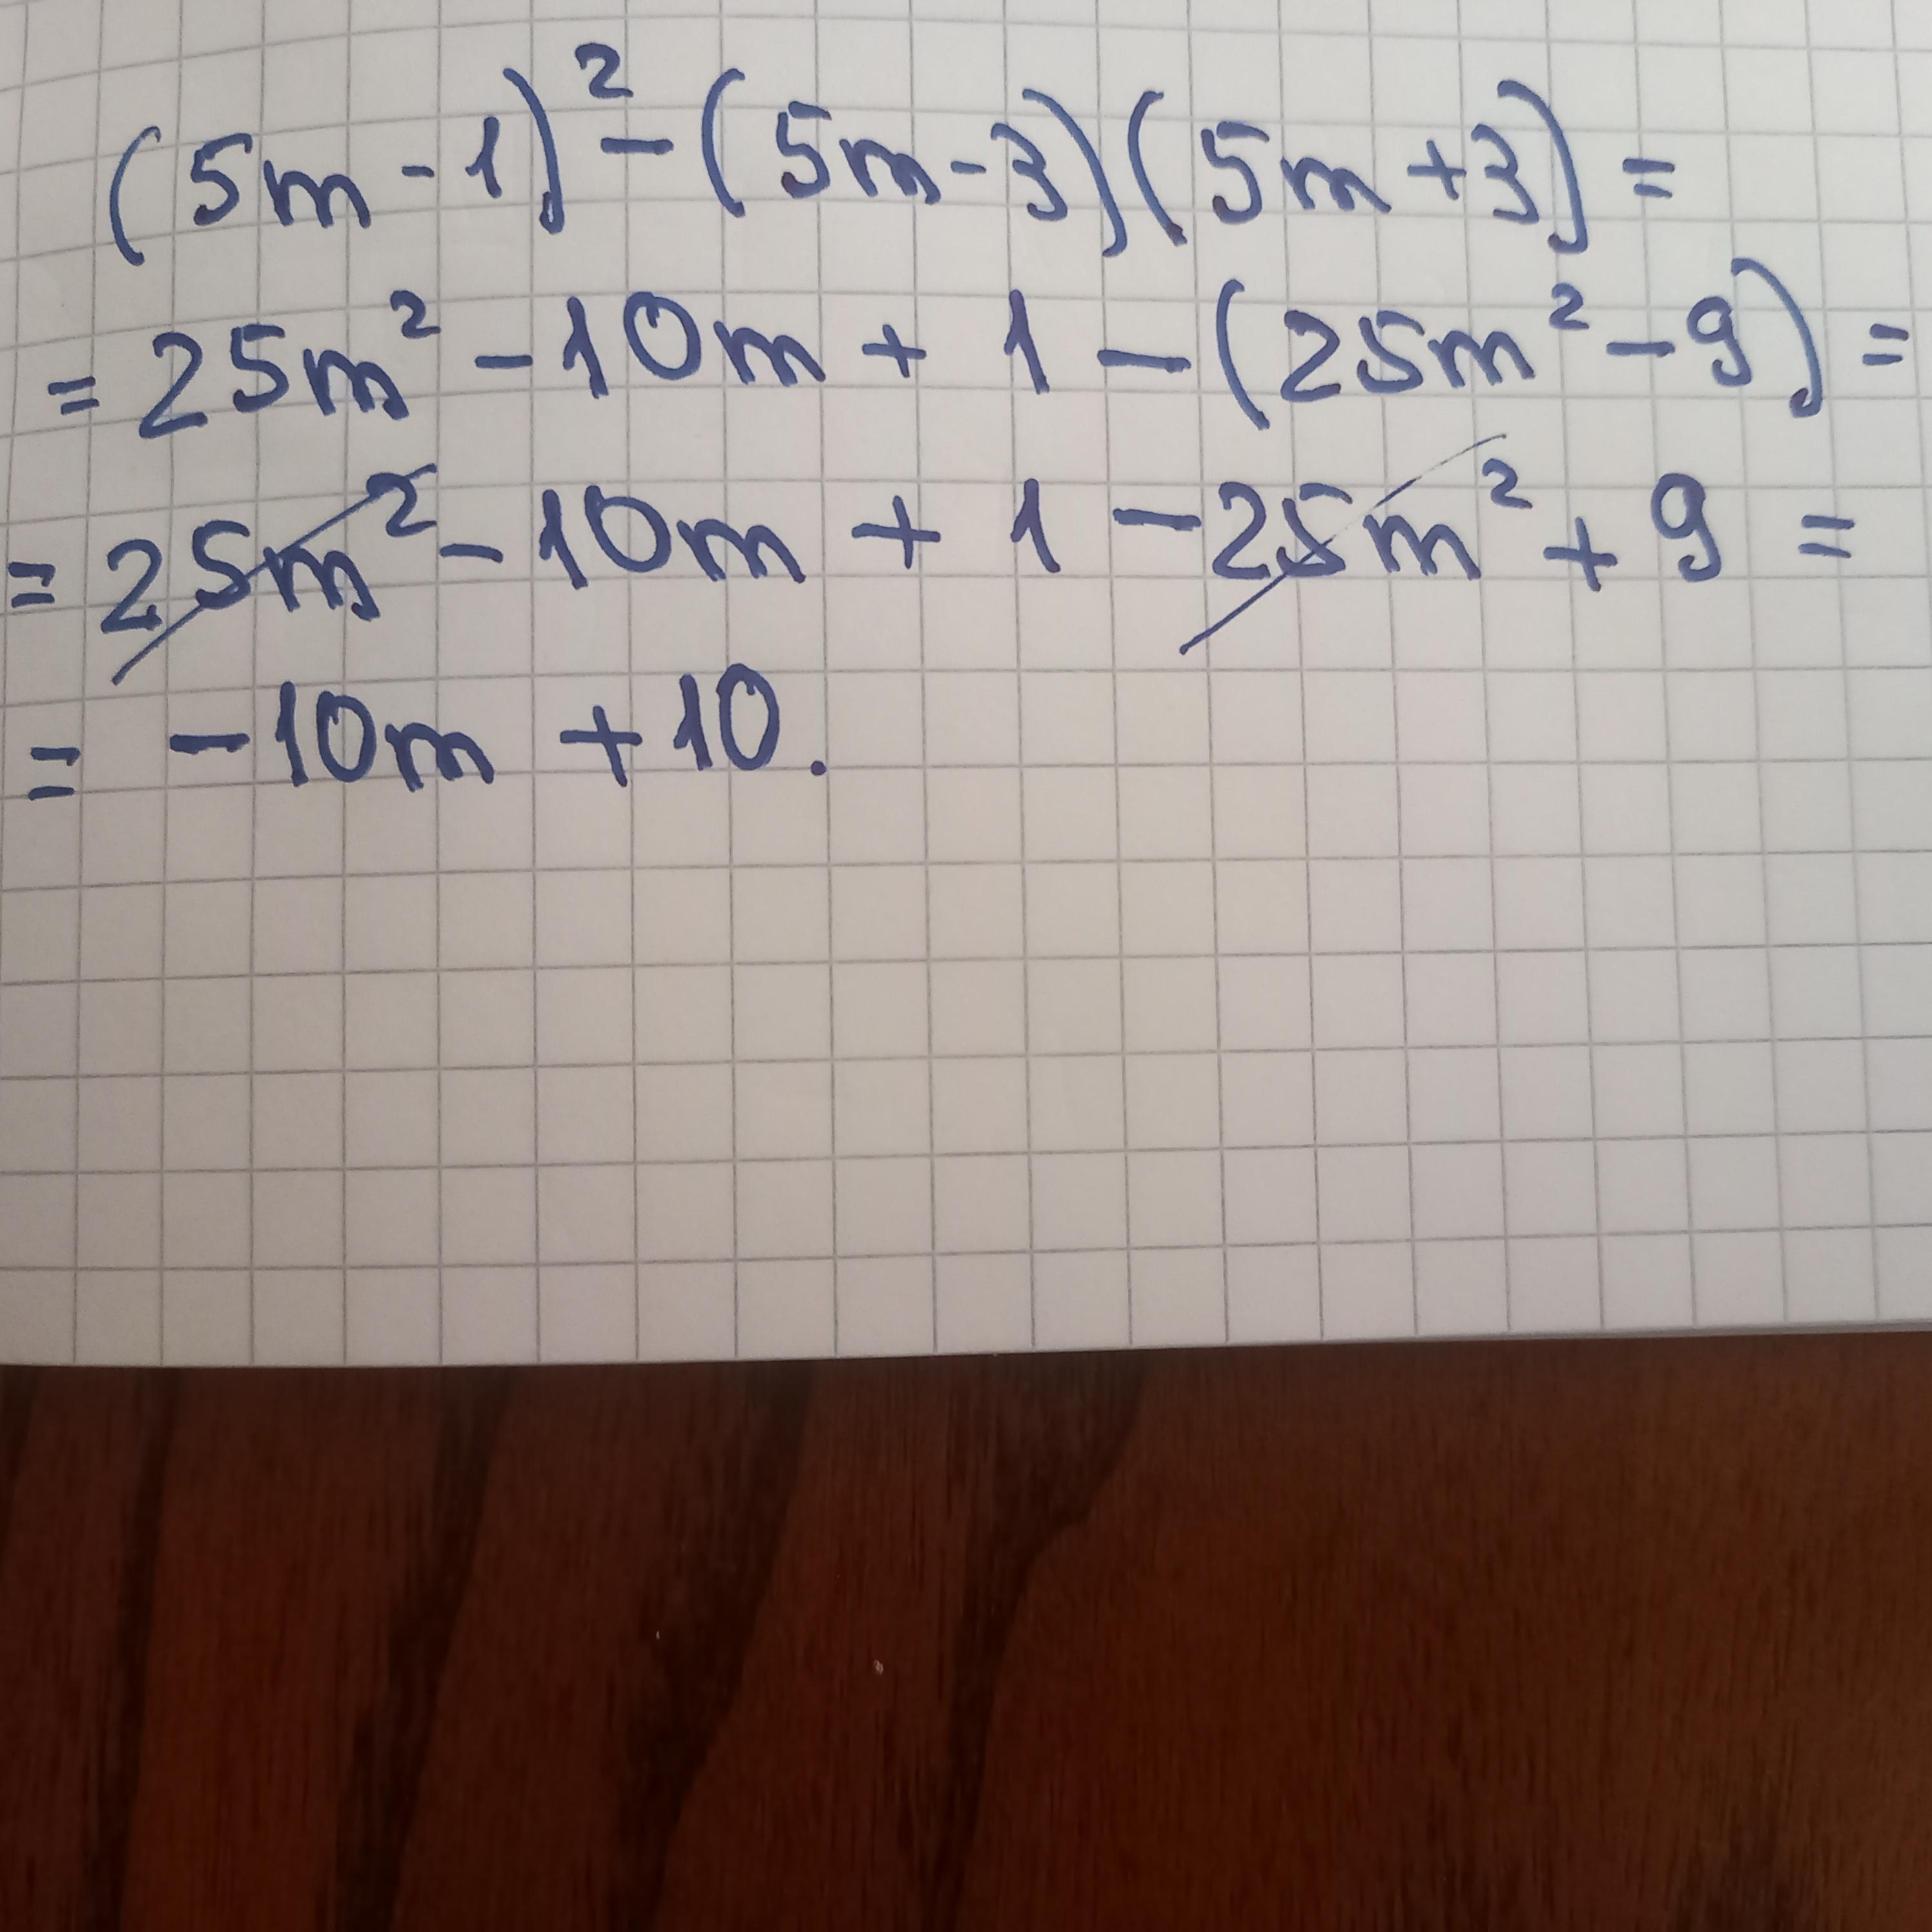 (5m-1)² - (5m-3)(5m+3) =
= 25m² - 10m + 1 - (25m² - 9) =
= 25m² - 10m + 1 - 25m² + 9 =
= -10m + 10.